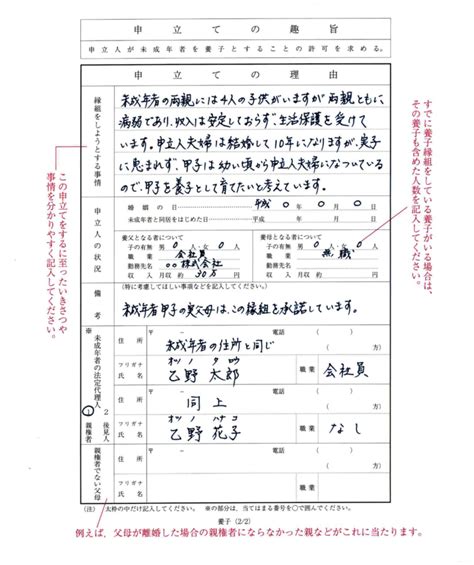 申立ての趣旨
申立人が未成年者を養子とすることの許可を求める。
申立ての理由
縁組をしようとする事情
未成年者の両親には4人の子供がいますが両親ともに
病弱であり、収入は安定しておらず、生活保護を受けて
います。申立人夫婦は結婚して10年になりますが、実子
に恵まれず、甲子は幼い頃から申立人夫婦になついている
ので、甲子を養子として育てたいと考えています。
申立人の状況
婚姻の日 平成〇年〇月〇日
未成年者と同居をはじめた日 平成 年 月 日
養父となる者について
子の有無 男 0 人・女 0 人
職業 会社員
勤務先名 〇〇株式会社
収入 月収約 30万 円
養母となる者について
子の有無 男 0 人・女 0 人
職業 無職
勤務先名
収入 月収約 円
備考
(特に考慮してほしい事項などを記入してください。)
未成年者甲子の実父母は、この縁組を承諾しています。
※ 未成年者の法定代理人
1 親権者
2 後見人
住所
〒 －
電話 ( )
未成年者の住所と同じ
( 方)
フリガナ
氏名
オツノ タロウ
乙野 太郎
職業
会社員
住所
〒 －
電話 ( )
同上
( 方)
フリガナ
氏名
オツノ ハナコ
乙野 花子
職業
なし
親権者でない父母
住所
〒 －
電話 ( )
( 方)
フリガナ
氏名
職業
(注) 太枠の中だけ記入してください。 ※の部分は、当てはまる番号を〇で囲んでください。
養子 (2/2)
すでに養子縁組をしている養子がいる場合は、
その養子も含めた人数を記入してください。
この申立てをするに至ったいきさつや
事情を分かりやすく記入してください。
例えば、父母が離婚した場合の親権者にならなかった親などがこれに当たります。